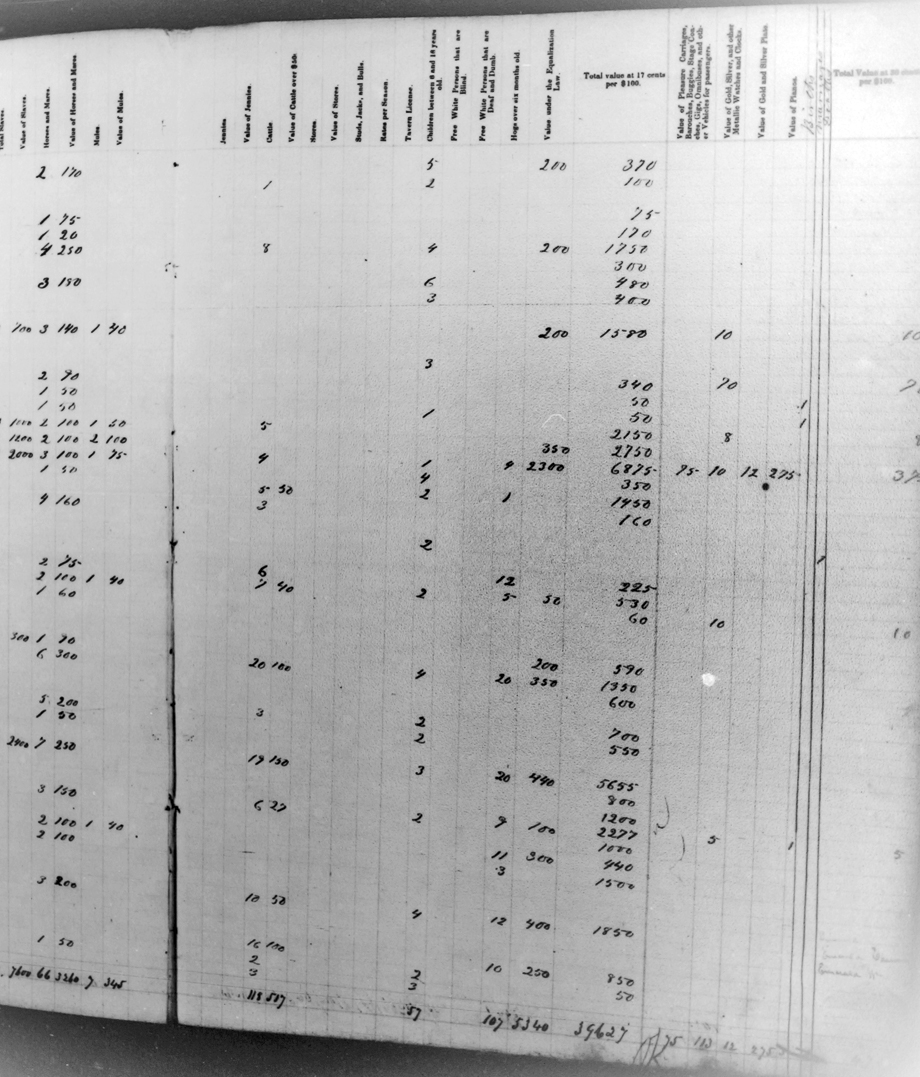 Value of Slaves.
Horses and Mares.
Value of Horses and Mares
Mules.
Value of Mules.
Jennies
Value of Jennies.
Cattle.
Value of Cattle over $50.
Stores.
Value of Stores.
Studs, Jacks, and Bulls.
Rates per Season
Tavern License.
Children between 6 and 18 years old.
Free White Persons that are Blind.
Free White Persons that are Deaf and Dumb.
Hogs over six months old.
Value under the Equalization Law.
Total value at 17 cents per $100.
Value of Pleasure Carriages, Barouches, Buggies, Stage Coaches, Gigs, Omnibuses, and other Vehicles for passengers.
Value of Gold, Silver, and other Metallic Watches and Clocks.
Value of Gold and Silver Plate.
Value of Pianos.
Total Value at 30 cents per $100.
2 170 5 200 370
1 2 100
1 75 75
1 20 170
4 250 8 4 200 1750
300
3 180 6 480
3 400
700 3 140 1 40 200 1580 10
3
2 90 340 70
1 50 50
1 50 1 50
1000 2 100 1 50 5 2150 8
1200 2 100 2 100 350 2750
2000 3 100 1 75 4 1 4 2300 6875 75 10 12 275
1 50 4 350
5 50 2 1 1450
4 160 3 160
2
2 75 6 12 225
2 100 1 40 7 40 2 5 50 530
1 60 60 10
300 1 90 200 590
6 300 20 100 4 20 350 1350
600
5 200 2 700
1 50 3 2 550
2400 7 250 19 150 3 20 440 5655
3 150 800
6 27 2 9 100 1200
2 100 1 40 2277 5
2 100 1000
11 300 440
3 200 3 1500
10 50 4 12 400 1850
1 50 16 100 10 250 850
2 2
3 3 50
7600 66 3260 7 345 118 517 57 107 5340 39627 75 113 12 275